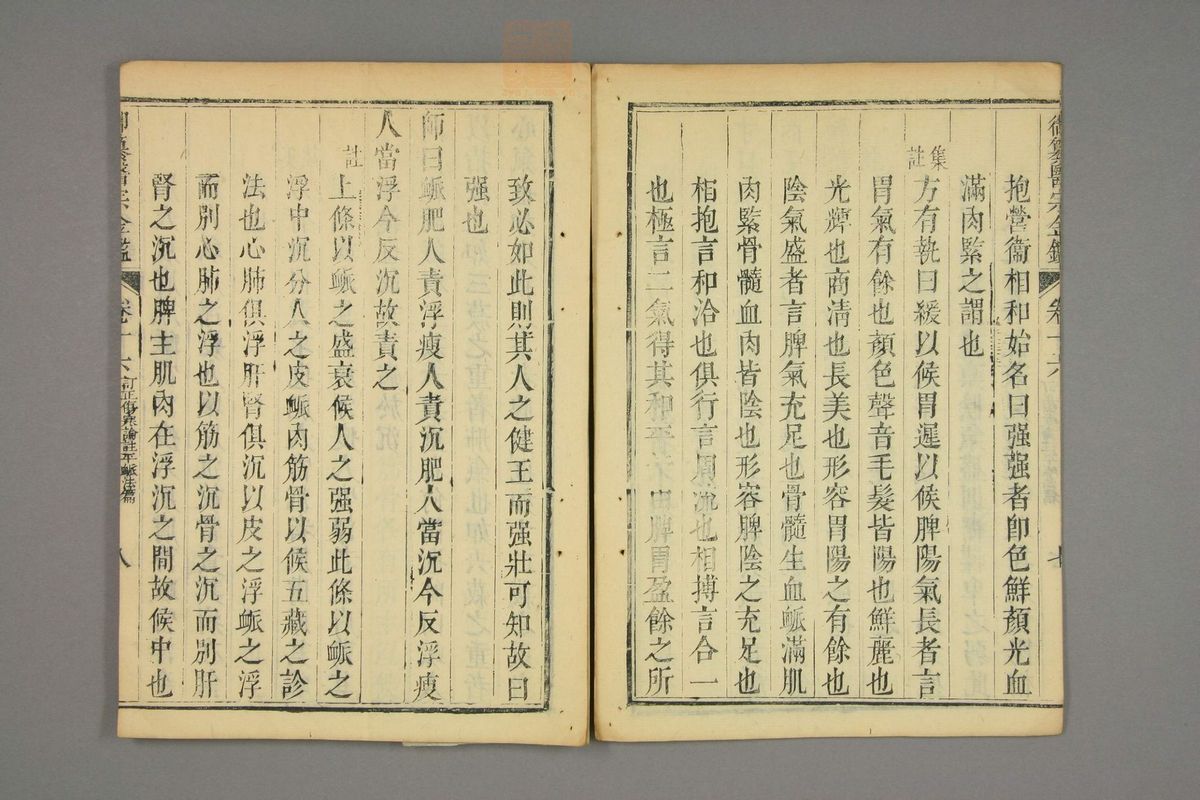 御纂醫宗金鑑 卷十六 七
抱營衞相和始名曰强强者即色鮮顏光血
滿肉緊之謂也
集註
方有執曰緩以候胃遲以候脾陽氣長者言
胃氣有餘也顏色聲音毛髮皆陽也鮮麗也
光澤也商淸也長美也形容胃陽之有餘也
陰氣盛者言脾氣充足也骨髓生血脈滿肌
肉緊骨髓血肉皆陰也形容脾陰之充足也
相抱言和洽也俱行言周流也相搏言合一
也極言二氣得其和平莫不由脾胃盈餘之所
致必如此則其人之健王而强壯可知故曰
强也
師曰脈肥人責浮瘦人責沉肥人當沉今反浮瘦
人當浮今反沉故責之
註
上條以脈之盛衰候人之强弱此條以脈之
浮中沉分人之皮脈肉筋骨以候五藏之診
法也心肺俱浮肝腎俱沉以皮之浮脈之浮
而別心肺之浮也以筋之沉骨之沉而別肝
腎之沉也脾主肌肉在浮沉之間故候中也
御纂醫宗金鑑 卷十六 訂正傷寒論註平脈法篇 八